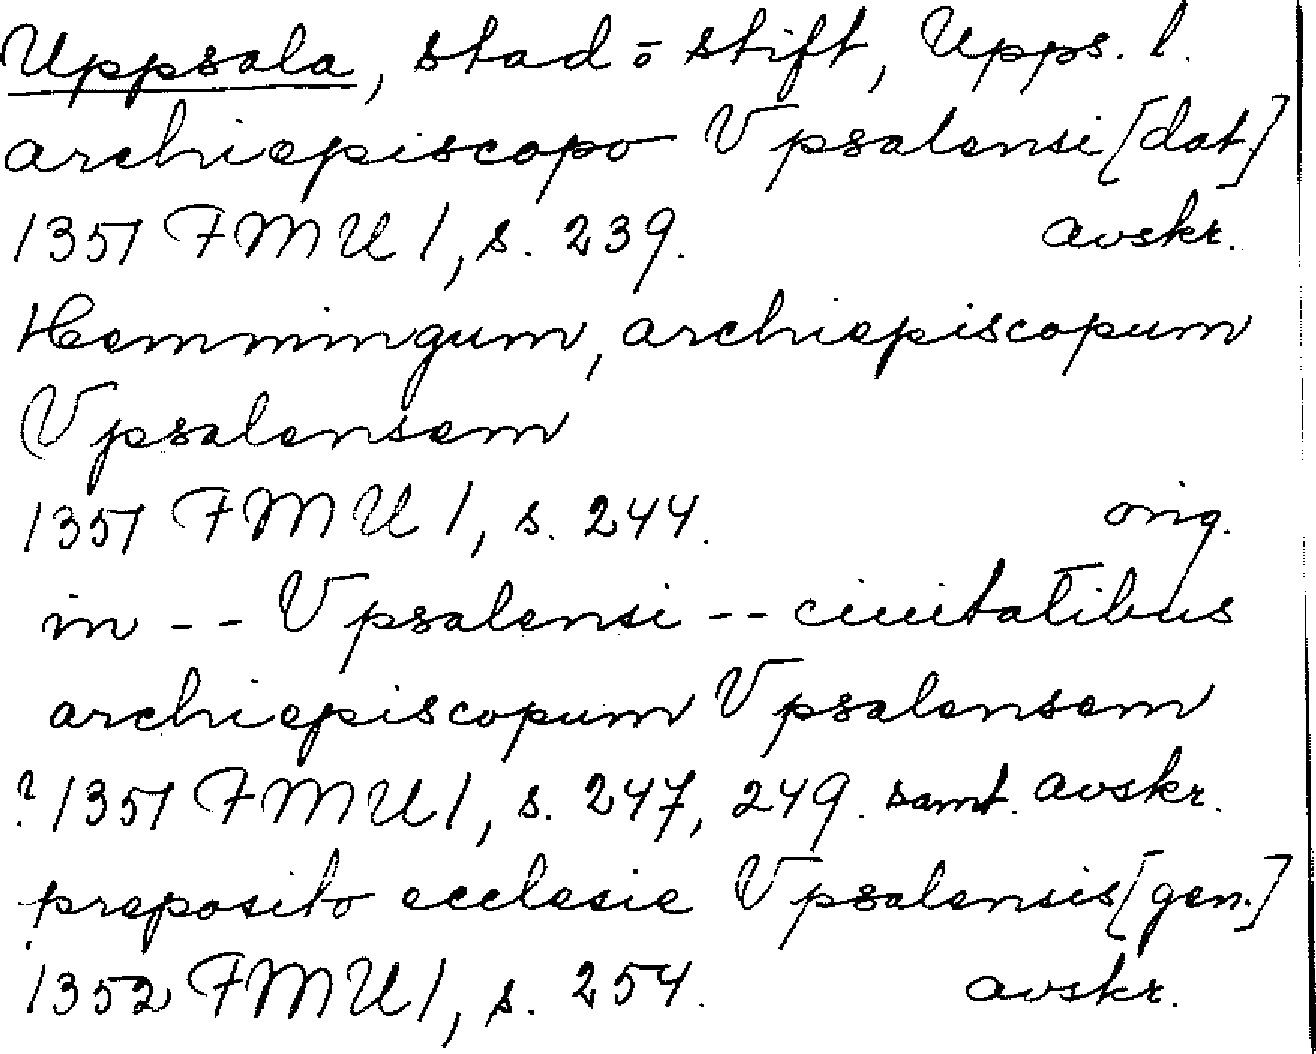 Uppsala, stad o stift, Upps. l.
archiepiscopo Vpsalensi [dat.]
1351 FMU 1, s. 239. avskr.
Hemmingum, archiepiscopum
Vpsalensem
1351 FMU 1, s. 244. orig.
in -- Vpsalensi -- ciuitatibus
archiepiscopum Vpsalensem
? 1351 FMU 1, s. 247, 249. samt. avskr.
preposito ecclesie Vpsalensis [gen.]
1352 FMU 1, s. 254. avskr.